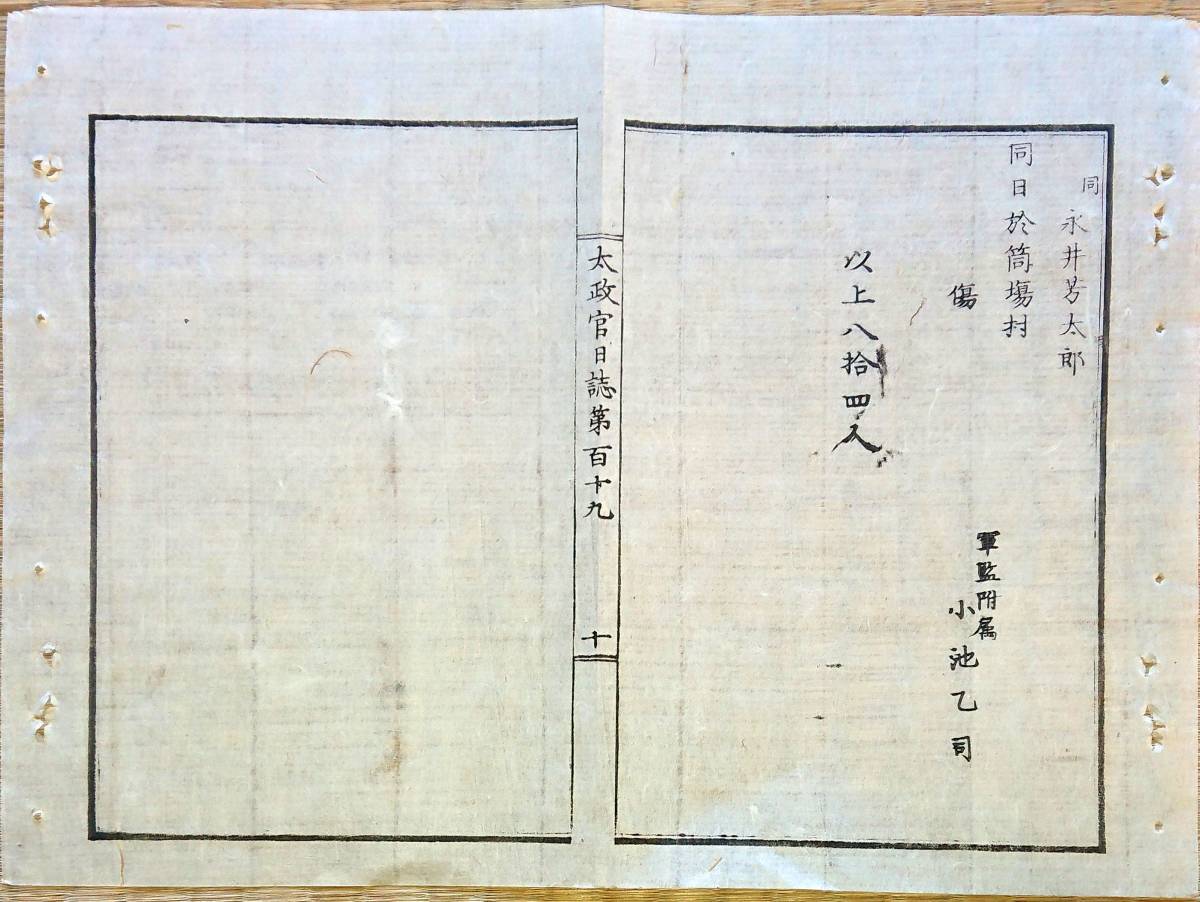 同 永井芳太郎
同日於筒塲村
傷
軍監附属
小池乙司
以上八拾四人
太政官日誌第百十九
十